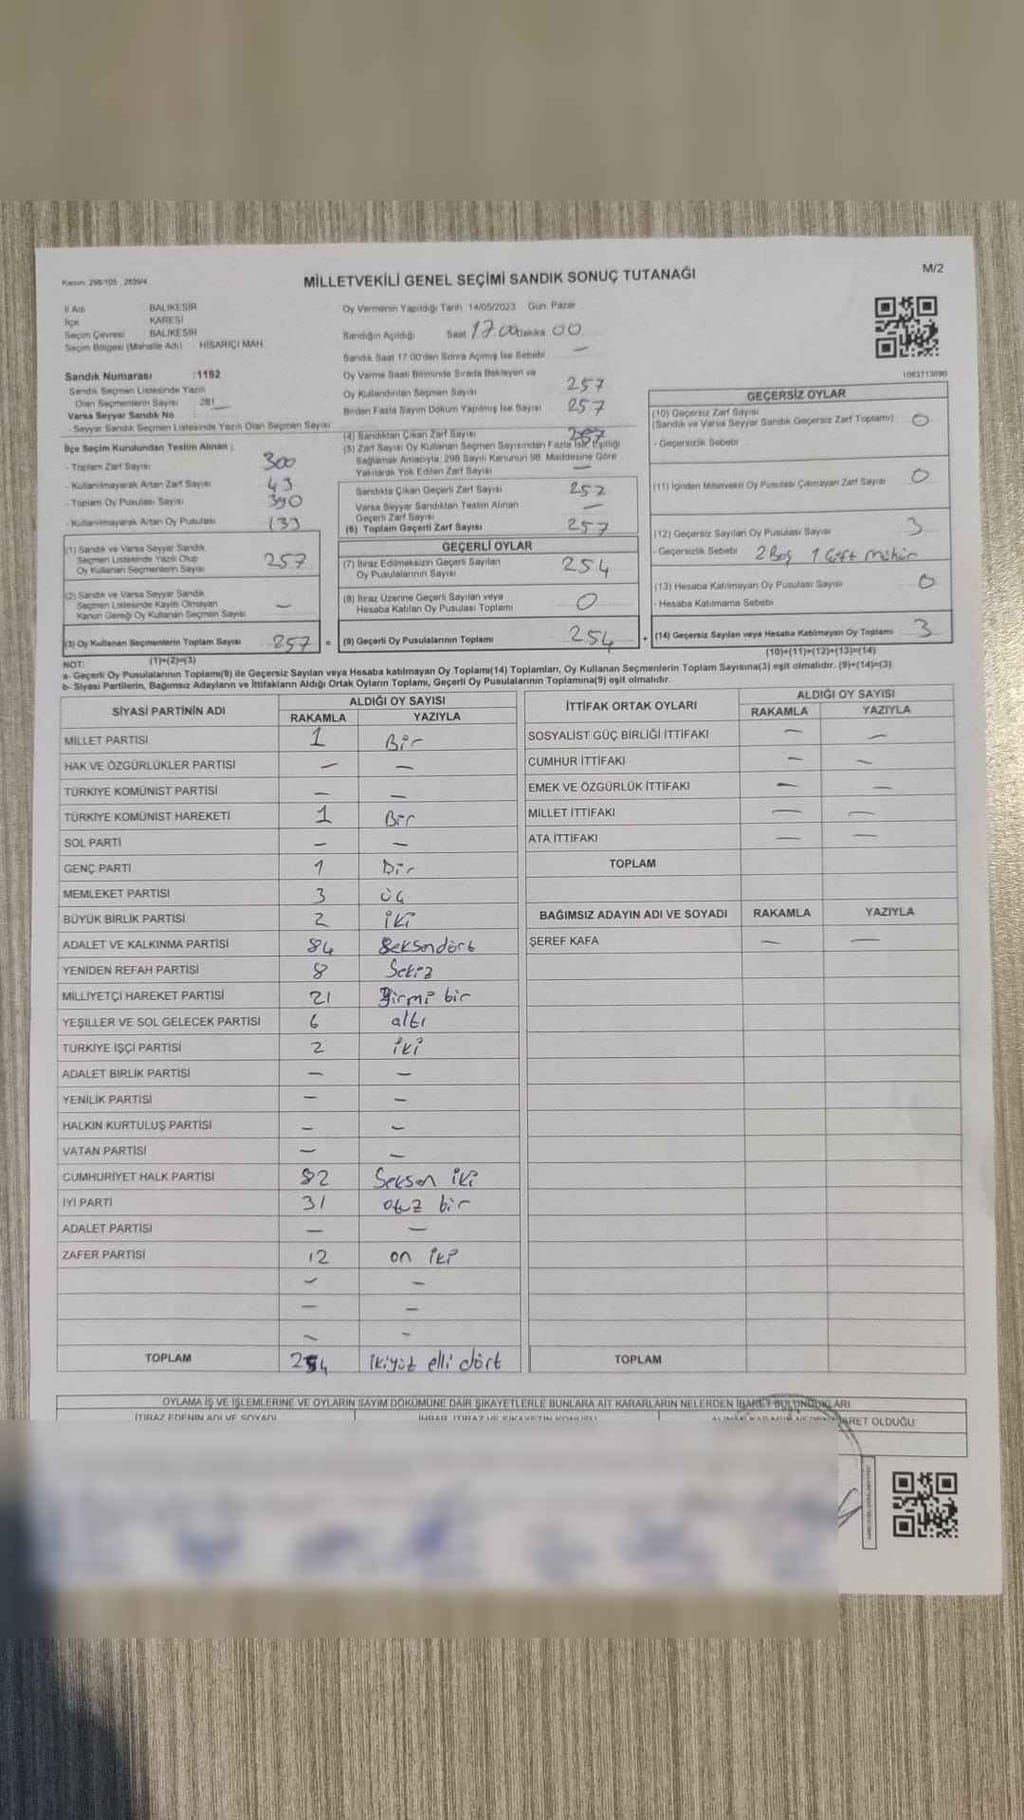 Kanun: 298/105 , 2839/4
MİLLETVEKİLİ GENEL SEÇİMİ SANDIK SONUÇ TUTANAĞI
M/2
İl Adı BALIKESİR
İlçe KARESİ
Seçim Çevresi BALIKESİR
Seçim Bölgesi (Mahalle Adı) HİSARİÇİ MAH.
Sandık Numarası :1192
Sandık Seçmen Listesinde Yazılı
Olan Seçmenlerin Sayısı : 281
Varsa Seyyar Sandık No
- Seyyar Sandık Seçmen Listesinde Yazılı Olan Seçmen Sayısı
İlçe Seçim Kurulundan Teslim Alınan ;
- Toplam Zarf Sayısı 300
- Kullanılmayarak Artan Zarf Sayısı 43
- Toplam Oy Pusulası Sayısı 390
- Kullanılmayarak Artan Oy Pusulası 133
(1) Sandık ve Varsa Seyyar Sandık
Seçmen Listesinde Yazılı Olup
Oy Kullanan Seçmenlerin Sayısı 257
(2) Sandık ve Varsa Seyyar Sandık
Seçmen Listesinde Kayıtlı Olmayan
Kanun Gereği Oy Kullanan Seçmen Sayısı –
(3) Oy Kullanan Seçmenlerin Toplam Sayısı 257 =
(1)+(2)=(3)
Oy Vermenin Yapıldığı Tarih 14/05/2023 Gün: Pazar
Sandığın Açıldığı Saat 17.00 Dakika 00
Sandık Saat 17.00'den Sonra Açılmış İse Sebebi –
Oy Verme Saati Bitiminde Sırada Bekleyen ve
Oy Kullandırılan Seçmen Sayısı 257
Birden Fazla Sayım Döküm Yapılmış İse Sayısı 257
(4) Sandıktan Çıkan Zarf Sayısı 257
(5) Zarf Sayısı Oy Kullanan Seçmen Sayısından Fazla İse, Eşitliği
Sağlamak Amacıyla, 298 Sayılı Kanunun 98. Maddesine Göre
Yakılarak Yok Edilen Zarf Sayısı –
Sandıkta Çıkan Geçerli Zarf Sayısı 257
Varsa Seyyar Sandıktan Teslim Alınan
Geçerli Zarf Sayısı –
(6) Toplam Geçerli Zarf Sayısı 257
GEÇERLİ OYLAR
(7) İtiraz Edilmeksizin Geçerli Sayılan
Oy Pusulalarının Sayısı 254
(8) İtiraz Üzerine Geçerli Sayılan veya
Hesaba Katılan Oy Pusulası Toplamı 0
(9) Geçerli Oy Pusulalarının Toplamı 254 +
1083713090
GEÇERSİZ OYLAR
(10) Geçersiz Zarf Sayısı
(Sandık ve Varsa Seyyar Sandık Geçersiz Zarf Toplamı) 0
- Geçersizlik Sebebi
(11) İçinden Milletvekili Oy Pusulası Çıkmayan Zarf Sayısı 0
(12) Geçersiz Sayılan Oy Pusulası Sayısı 3
- Geçersizlik Sebebi 2 Boş 1 Çift mühür
(13) Hesaba Katılmayan Oy Pusulası Sayısı 0
- Hesaba Katılmama Sebebi
(14) Geçersiz Sayılan veya Hesaba Katılmayan Oy Toplamı 3
(10)+(11)+(12)+(13)=(14)
NOT:
a- Geçerli Oy Pusulalarının Toplamı(9) ile Geçersiz Sayılan veya Hesaba katılmayan Oy Toplamı(14) Toplamları, Oy Kullanan Seçmenlerin Toplam Sayısına(3) eşit olmalıdır. (9)+(14)=(3)
b- Siyasi Partilerin, Bağımsız Adayların ve İttifakların Aldığı Ortak Oyların Toplamı, Geçerli Oy Pusulalarının Toplamına(9) eşit olmalıdır.
SİYASİ PARTİNİN ADI ALDIĞI OY SAYISI
RAKAMLA YAZIYLA
MİLLET PARTİSİ 1 Bir
HAK VE ÖZGÜRLÜKLER PARTİSİ – –
TÜRKİYE KOMÜNİST PARTİSİ – –
TÜRKİYE KOMÜNİST HAREKETİ 1 Bir
SOL PARTİ – –
GENÇ PARTİ 1 Bir
MEMLEKET PARTİSİ 3 üç
BÜYÜK BİRLİK PARTİSİ 2 iki
ADALET VE KALKINMA PARTİSİ 84 Seksendört
YENİDEN REFAH PARTİSİ 8 Sekiz
MİLLİYETÇİ HAREKET PARTİSİ 21 Yirmi bir
YEŞİLLER VE SOL GELECEK PARTİSİ 6 altı
TÜRKİYE İŞÇİ PARTİSİ 2 iki
ADALET BİRLİK PARTİSİ – –
YENİLİK PARTİSİ – –
HALKIN KURTULUŞ PARTİSİ – –
VATAN PARTİSİ – –
CUMHURİYET HALK PARTİSİ 82 Seksen iki
İYİ PARTİ 31 otuz bir
ADALET PARTİSİ – –
ZAFER PARTİSİ 12 on iki
– –
– –
– –
TOPLAM 254 ikiyüz elli dört
İTTİFAK ORTAK OYLARI ALDIĞI OY SAYISI
RAKAMLA YAZIYLA
SOSYALİST GÜÇ BİRLİĞİ İTTİFAKI – –
CUMHUR İTTİFAKI – –
EMEK VE ÖZGÜRLÜK İTTİFAKI – –
MİLLET İTTİFAKI – –
ATA İTTİFAKI – –
TOPLAM
BAĞIMSIZ ADAYIN ADI VE SOYADI RAKAMLA YAZIYLA
ŞEREF KAFA – –
TOPLAM
OYLAMA İŞ VE İŞLEMLERİNE VE OYLARIN SAYIM DÖKÜMÜNE DAİR ŞİKAYETLERLE BUNLARA AİT KARARLARIN NELERDEN İBARET BULUNDUKLARI
İTİRAZ EDENİN ADI VE SOYADI İHBAR, İTİRAZ VE ŞİKAYETİN KONUSU ALINAN KARARIN NEDEN İBARET OLDUĞU